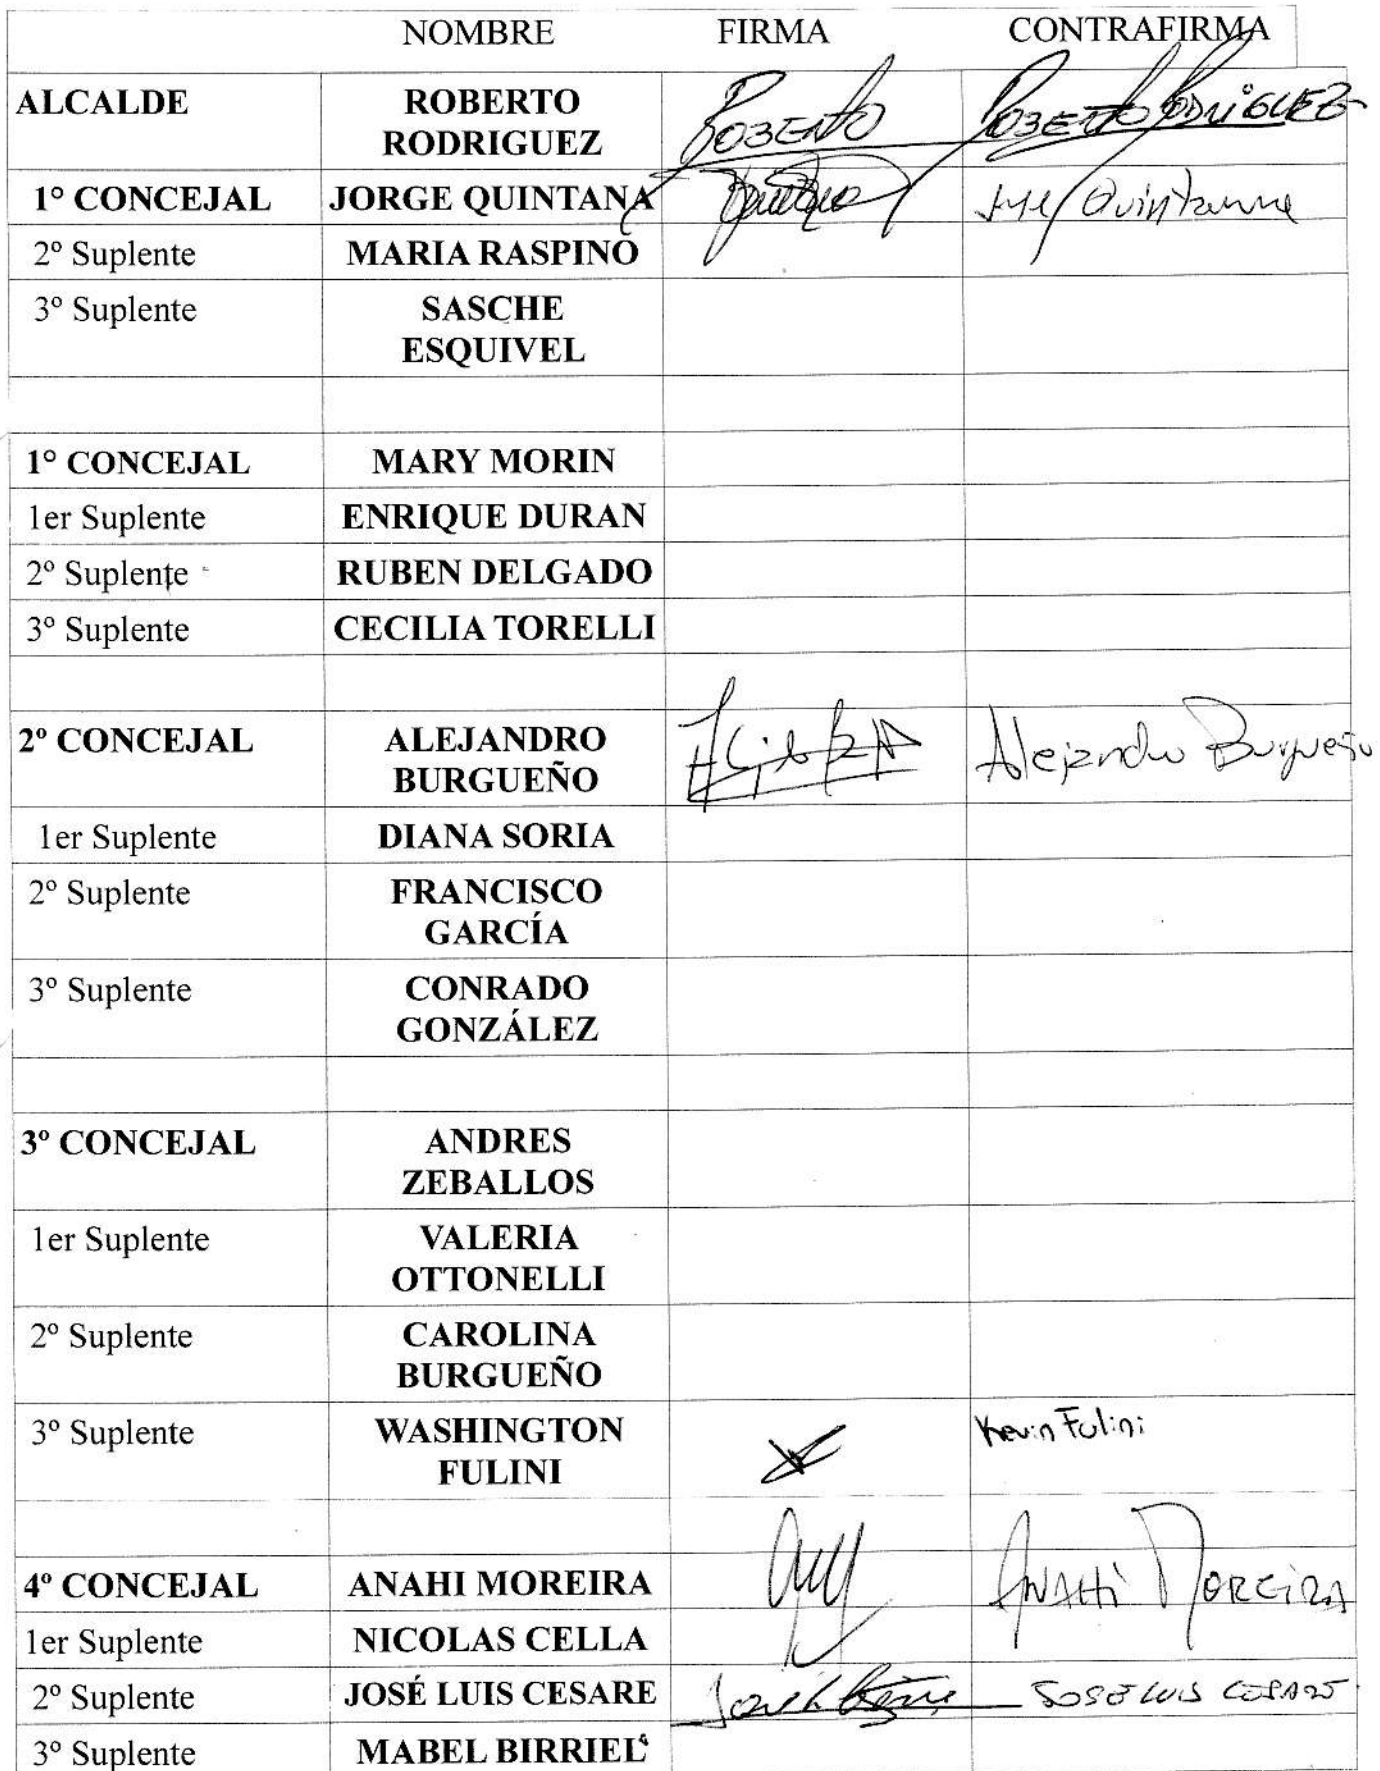 NOMBRE FIRMA CONTRAFIRMA
ALCALDE ROBERTO RODRIGUEZ ROBERTO ROBERTO RODRIGUEZ
1° CONCEJAL JORGE QUINTANA Quintana
2º Suplente MARIA RASPINO
3º Suplente SASCHE ESQUIVEL
1° CONCEJAL MARY MORIN
1er Suplente ENRIQUE DURAN
2º Suplente RUBEN DELGADO
3º Suplente CECILIA TORELLI
2º CONCEJAL ALEJANDRO BURGUEÑO Alejandro Burgueño
1er Suplente DIANA SORIA
2º Suplente FRANCISCO GARCÍA
3º Suplente CONRADO GONZÁLEZ
3º CONCEJAL ANDRES ZEBALLOS
1er Suplente VALERIA OTTONELLI
2º Suplente CAROLINA BURGUEÑO
3º Suplente WASHINGTON FULINI Kevin Fulini
4º CONCEJAL ANAHI MOREIRA ANAHÍ MOREIRA
1er Suplente NICOLAS CELLA
2º Suplente JOSÉ LUIS CESARE JOSÉ LUIS CESARE
3º Suplente MABEL BIRRIEL